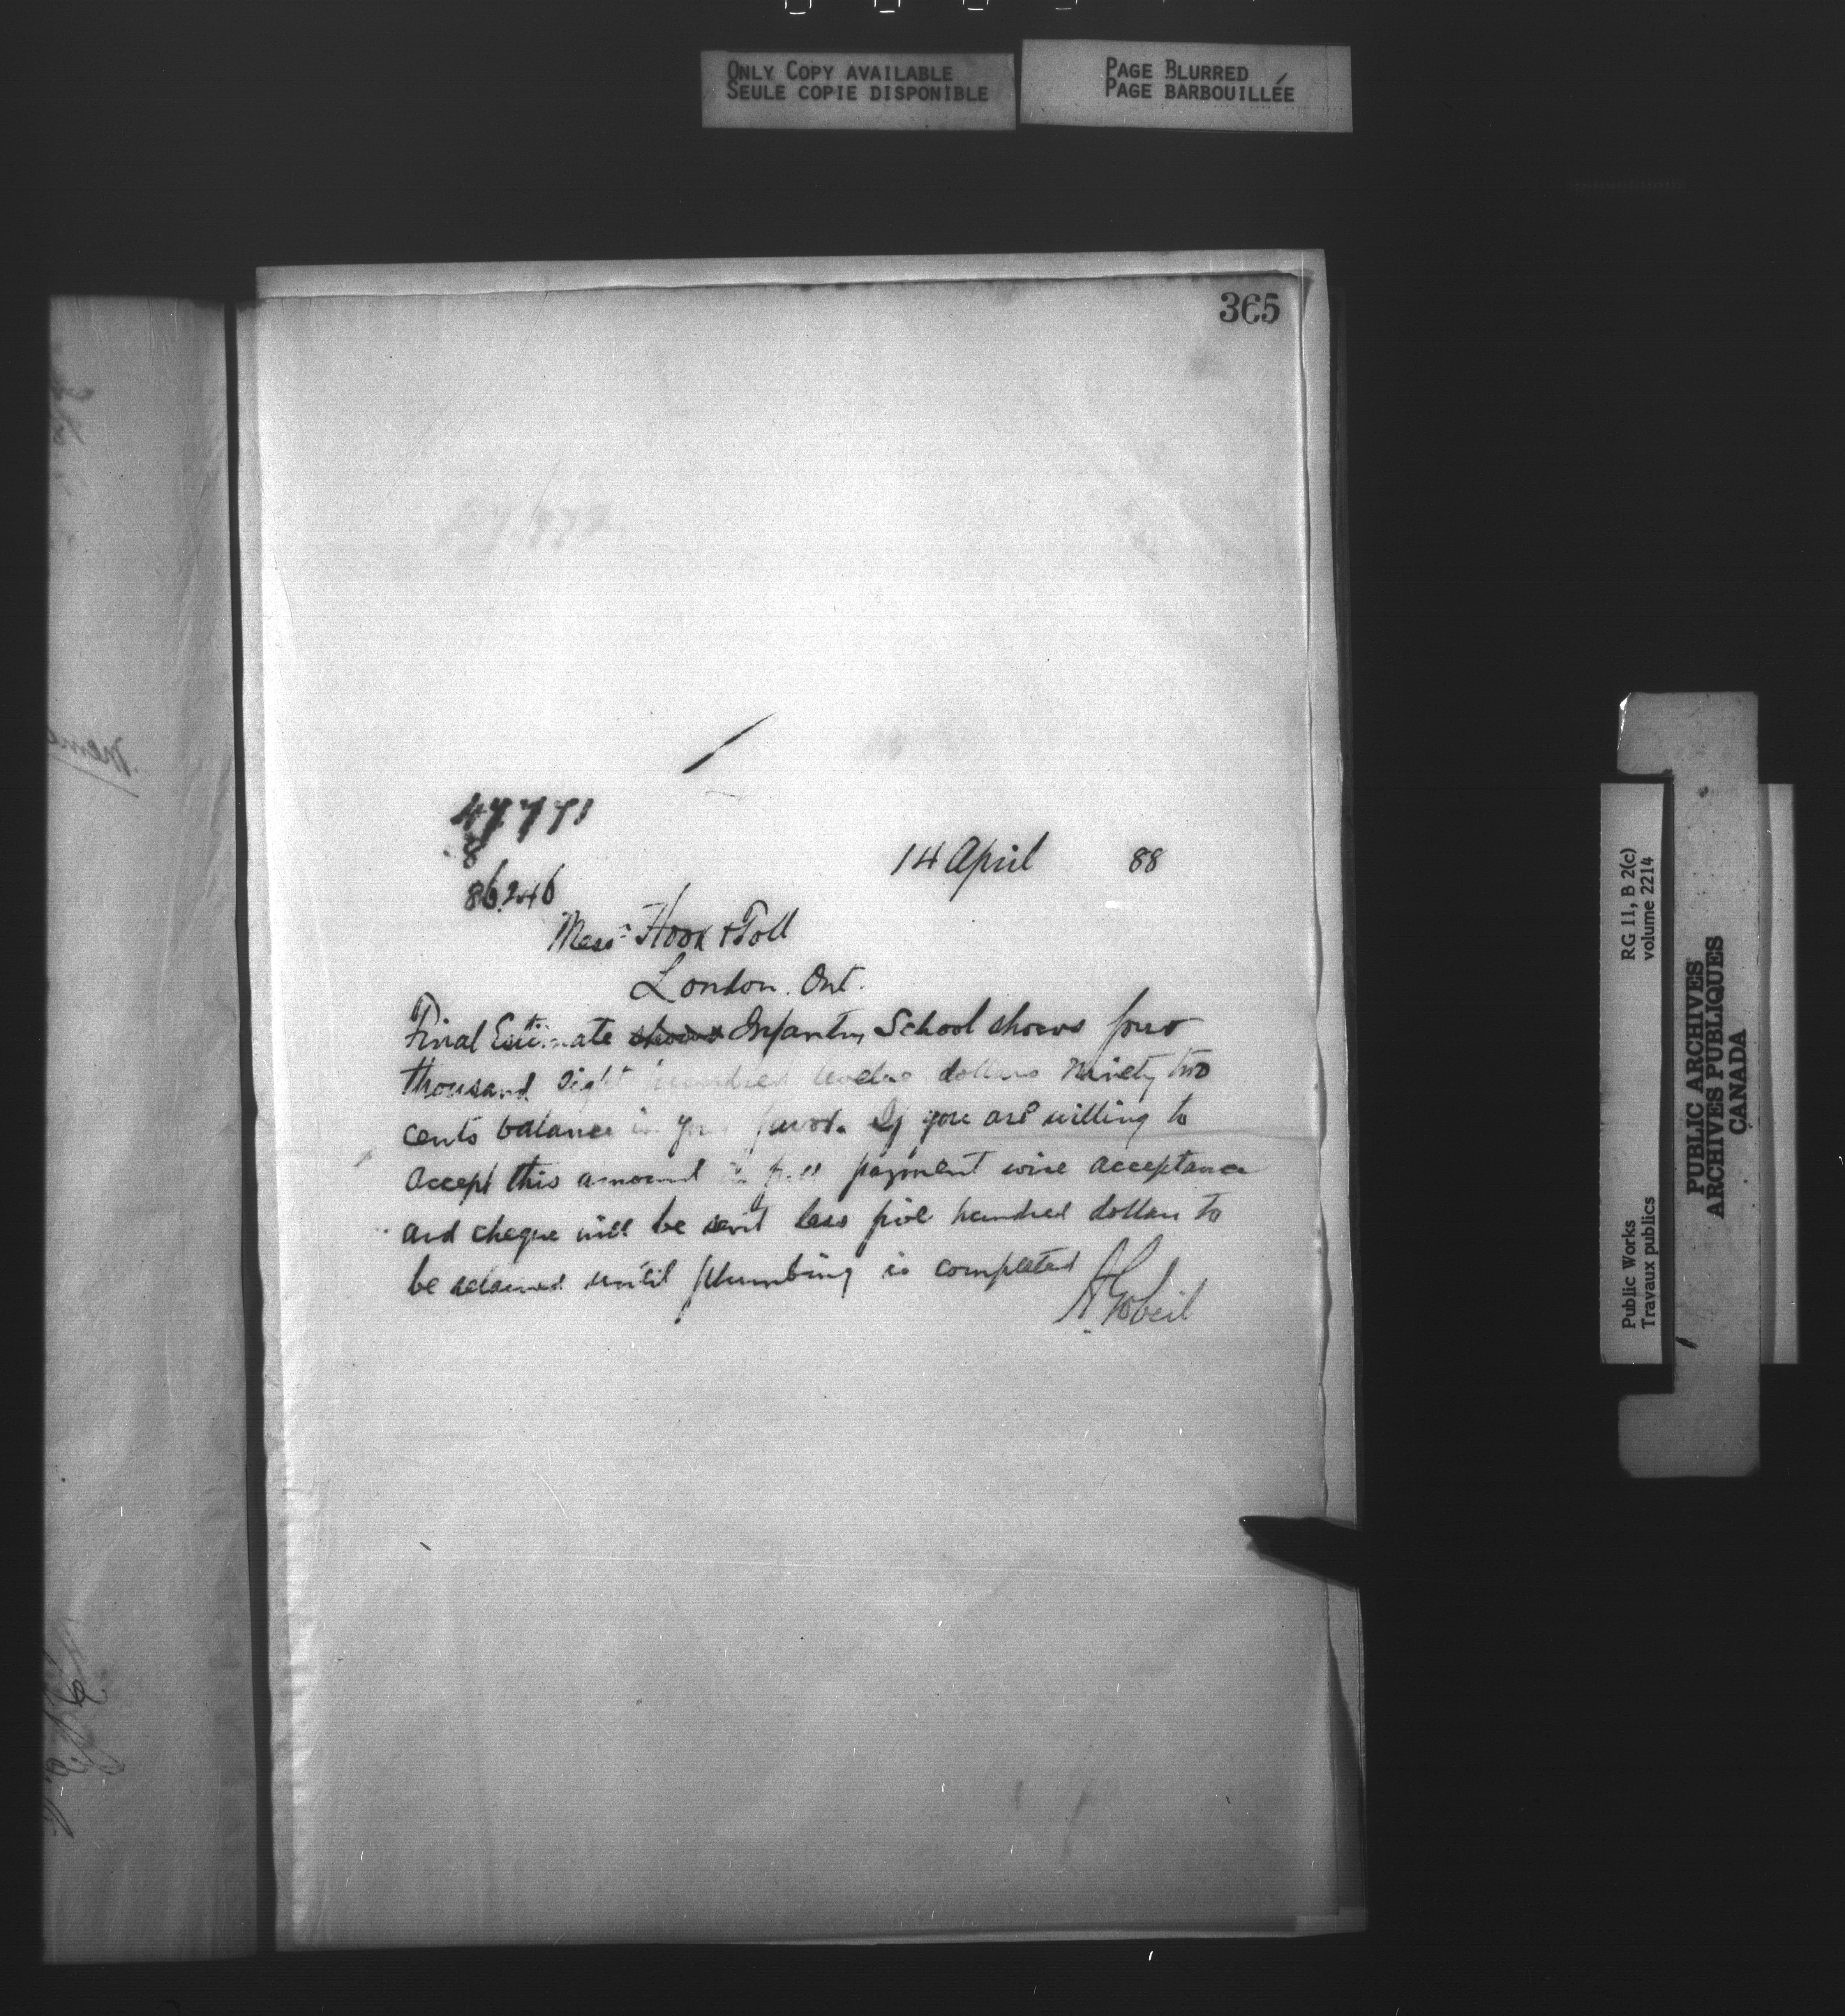 ONLY COPY AVAILABLE
SEULE COPIE DISPONIBLE
PAGE BLURRED
PAGE BARBOUILLÉE
365
86246
14 April 88
Messrs Hook & Toll
London. Ont.
Final Estimate shows Infantry School shows four
thousand eight hundred twelve dollars ninety two
cents balance in your favor. If you are willing to
accept this amount in full payment wire acceptance
and cheque will be sent less five hundred dollars to
be retained until plumbing is completed
A Gobeil
Public Works
Travaux publics
RG 11, B 2(c)
volume 2214
PUBLIC ARCHIVES
ARCHIVES PUBLIQUES
CANADA